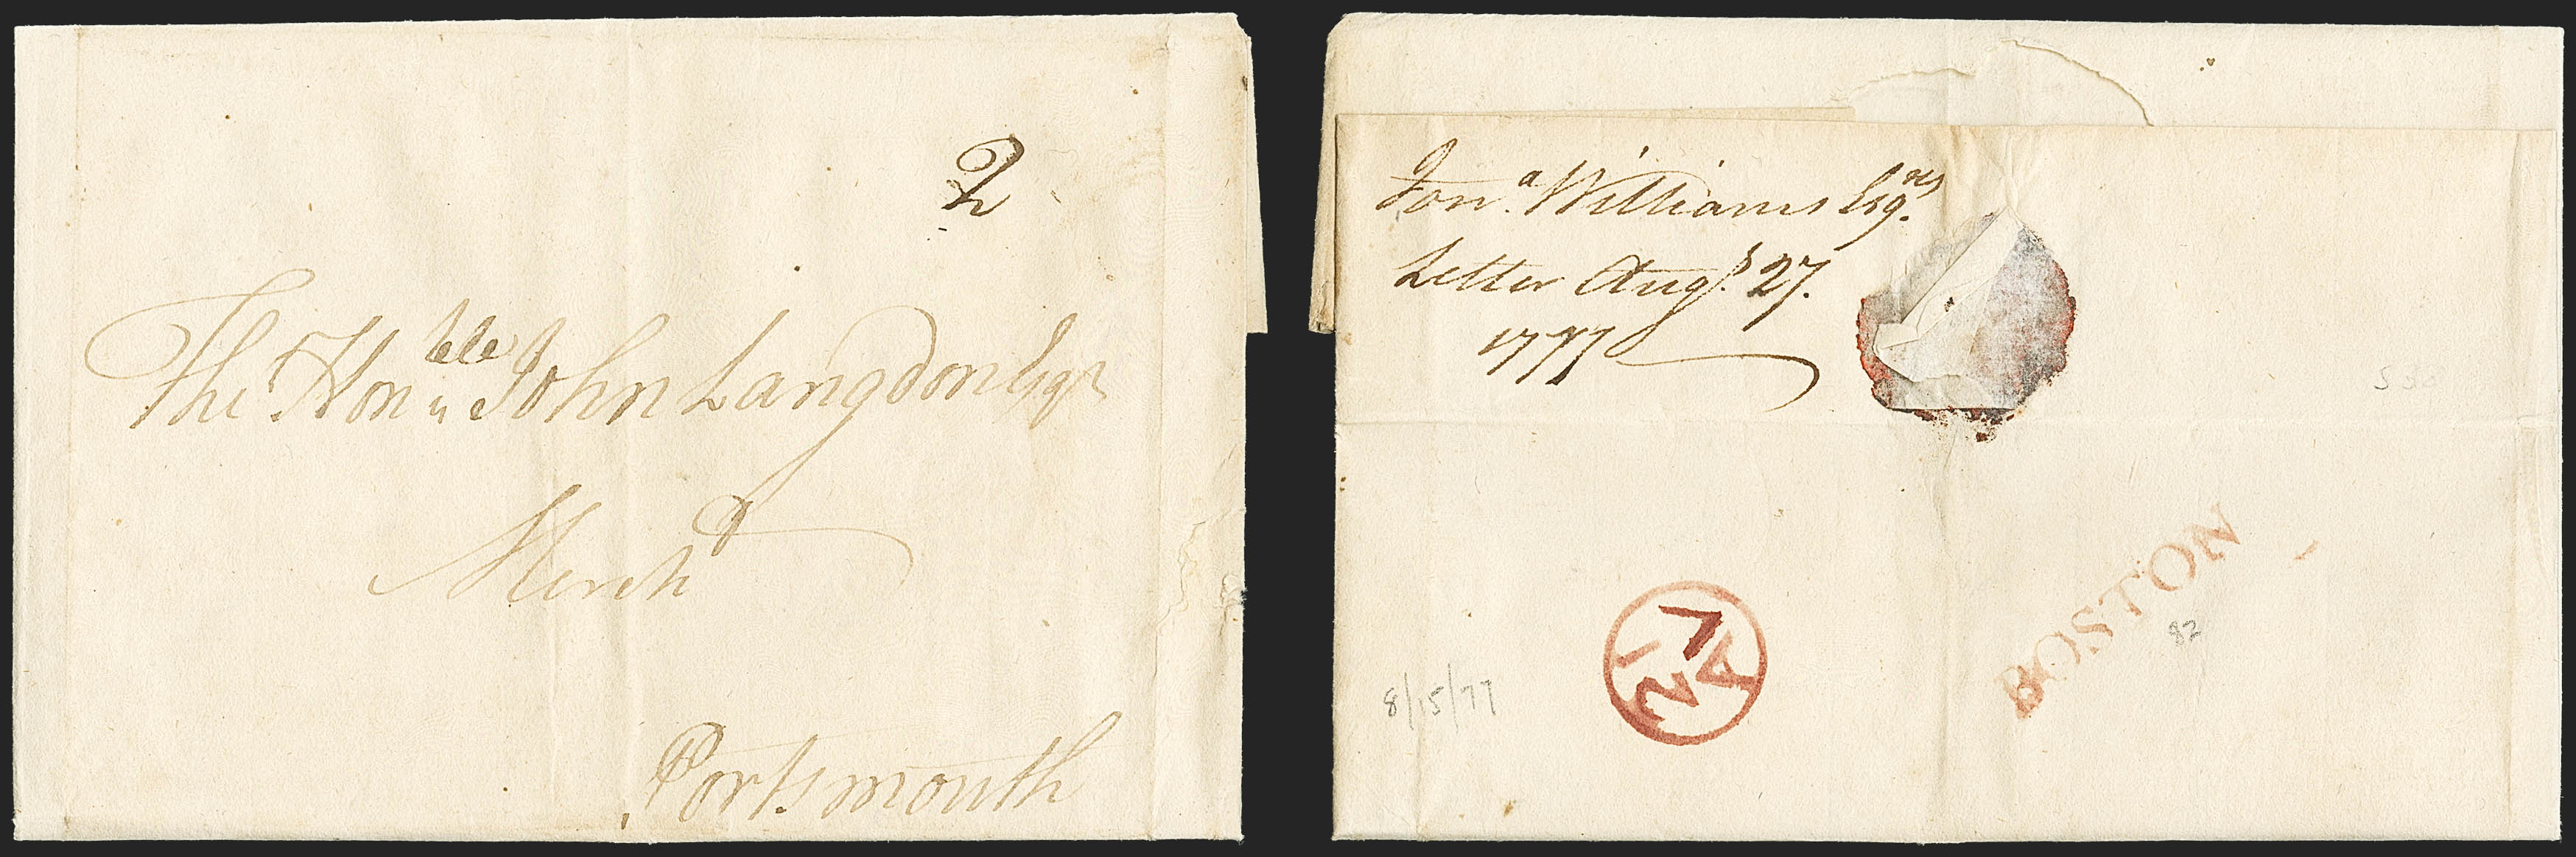 2
The Hon.ble John Langdon Esqr
Mercht
Portsmouth
Jona. Williams Esq.res
Letter Augt. 27.
1777
BOSTON
82
8/15/77